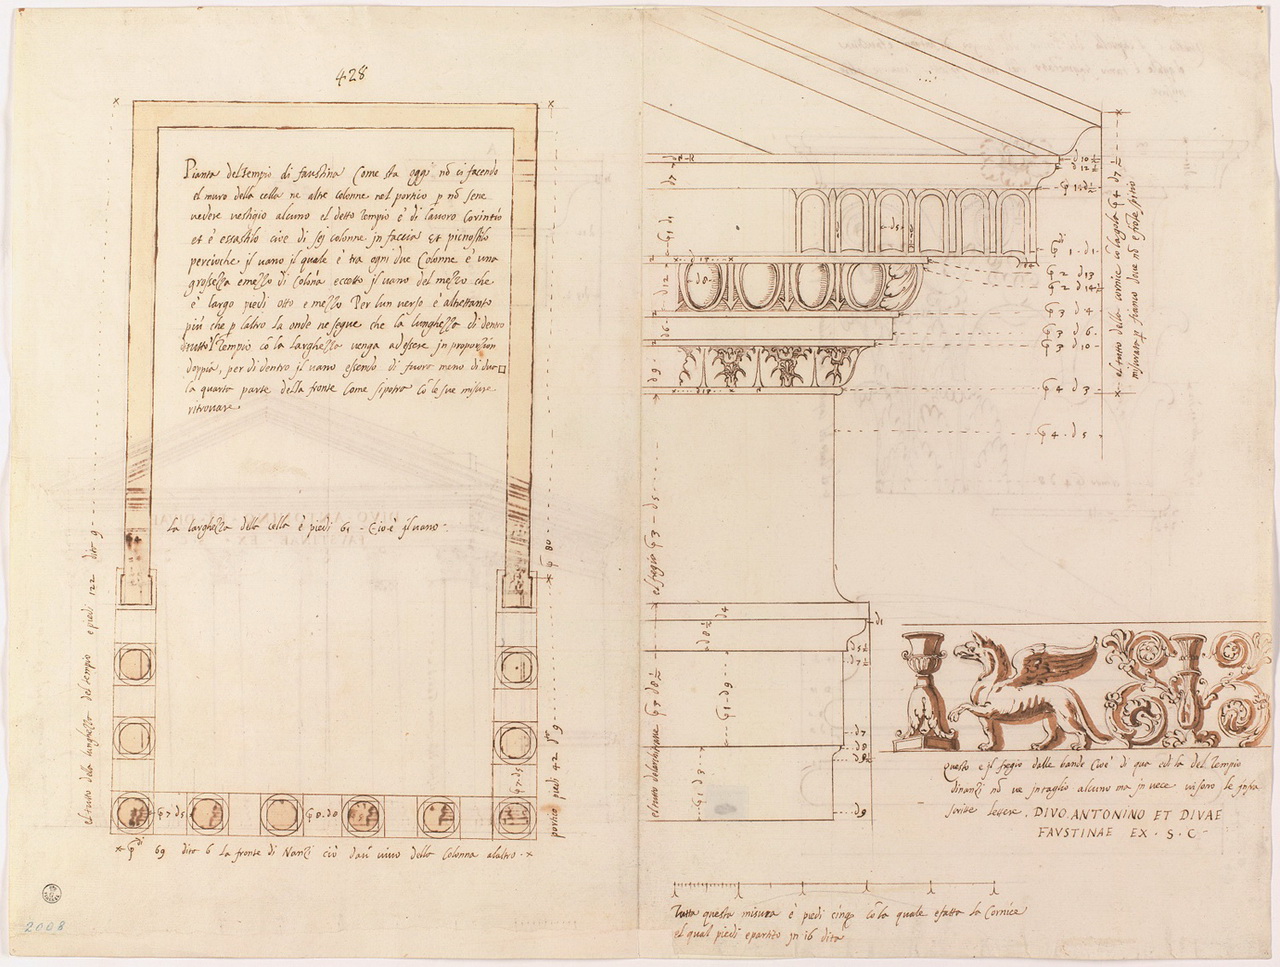 428
Pianta del tempio di faustina Come sta oggi nō ci facendo
el muro della cella ne altre colonne nel portico p nō sene
vedere vestigio alcuno el detto tempio è di lavoro Corintio
et è essastilo cioe di sej colonne jn faccia et picnostilo
percioche jl vano jl quale è tra ogni due Colonne è una
grossezza emezzo di Colōna eccetto jl vano del mezzo che
è largo piedi otto e mezzo Per lun verso è altrettanto
più che p laltro la onde ne segue che la lunghezza di dentro
tutto l tempio cō la larghezza venga adessere jn proporzion
doppia, per di dentro jl vano essendo di fuora meno di due
la quarta parte della fronte Come sipotrà cō le sue misure
ritrovare
La larghezza della cella è piedi 61 - Cioè jl vano
el tutto della lunghezza del tempio e piedi 122 dito 9
portico piedi 42 d 9
80
7 d 5
8 . d 8
7 . d 5
69 dito 6 la fronte di Nanzi ciò dall vivo della Colonna alaltro
d 7
1 d 1
d 12
d 6
d 9
d 5
d 8
d 10 ½
d 12 ½
1 - d 1
2 d 13
2 d 14
3 d 4
3 d 6
3 d 10
4 d 3
4 . d 5
el tutto della cornice cō la gola 4 d 7 ½
el fregio 3 - d 5
el tutto delarchitrave 7 d 8 ½
d 8 ½
d 4
1 - d 9
1 d 7
d 1
d 5 ½
d 7 ½
d 7
d 8
d 8 ½
d 9
Questo e jl fregio dalle bande Cioè di qua et di la del Tempio
dinanzi nō ve jntaglio alcuno ma jn vece vi sono le jnfra
scritte lettere . DIVO . ANTONINO ET DIVAE
FAVSTINAE EX . S . C .
Tutta questa misura è piedi cinq cō la quale e fatta la Cornice
el qual piedi e partito jn 16 dita
2008